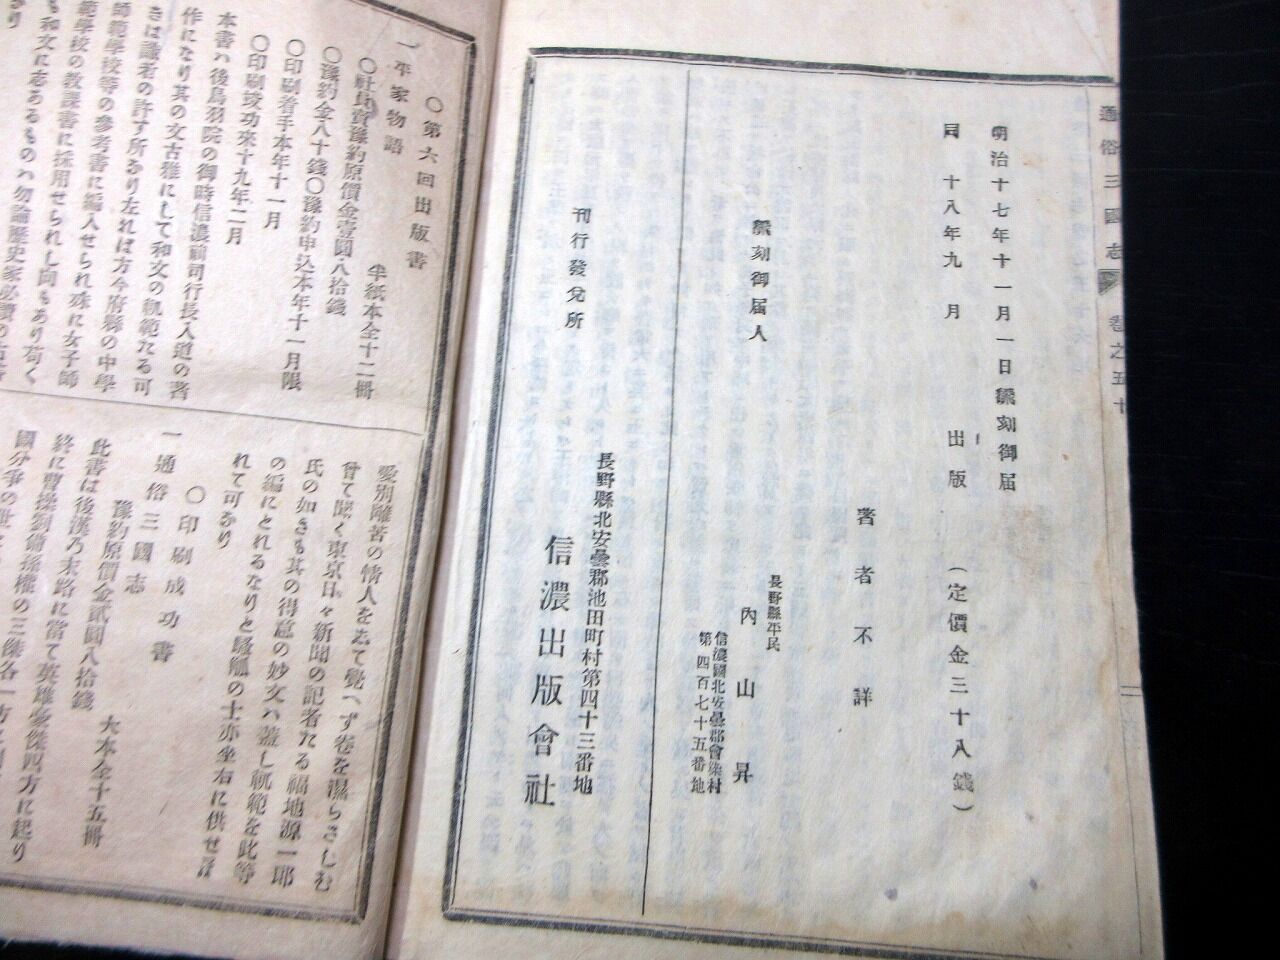 通俗三國志 卷之五十
明治十七年十一月一日飜刻御届
同 十八年九月 出版 (定價金三十八錢)
著者不詳
長野縣平民
飜刻御届人 內山昇
信濃國北安曇郡會染村
第四百七十五番地
長野縣北安曇郡池田町村第四十三番地
刊行發兌所 信濃出版會社
〇第六回出版書
一平家物語 半紙本全十二冊
〇社員實豫約原價金壹圓八拾錢
〇豫約金八十錢〇豫約申込本年十一月限
〇印刷着手本年十一月
〇印刷竣功來十九年二月
本書ハ後鳥羽院の御時信濃前司行長入道の著
作になり其の文古雅にして和文の軌範たる可
きは識者の許す所なり左れば方今府縣の中學
師範學校等の參考書に編入せられ殊に女子師
範學校の教課書に採用せられし向もあり苟く
も和文に志あるものハ勿論歷史家必讀の
愛別離苦の情人を志て覺へず卷を濕らさしむ
曾て聞く東京日々新聞の記者たる福地源一郎
氏の如きも其の得意の妙文ハ蓋し軌範を此等
の編にとれるなりと騷觚の士亦坐右に供せ
れて可なり
〇印刷成功書
一通俗三國志 大本全十五冊
豫約原價金貳圓八拾錢
此書は後漢乃末路に當て英雄豪傑四方に起り
終に曹操劉備孫權の三傑各一方
國分爭の世